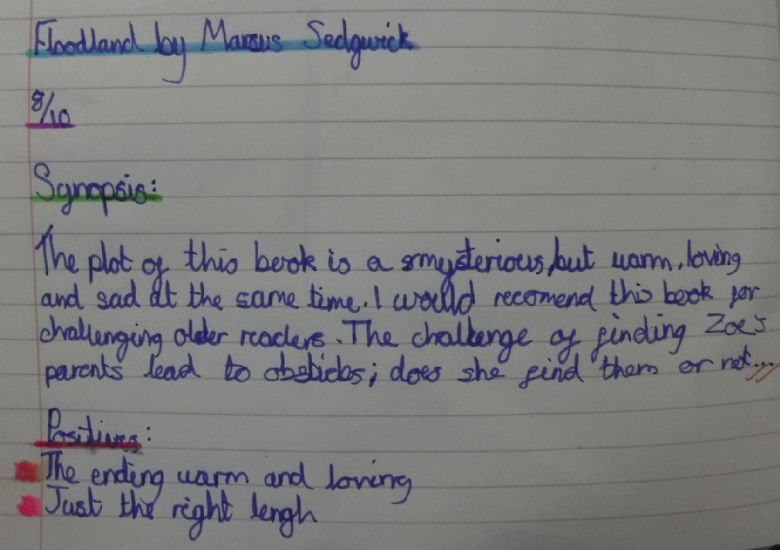 Floodland by Marcus Sedgwick
8/10
Synopsis:
The plot of this book is a smysterious, but warm, loving
and sad at the same time. I would recomend this book for
challenging older readers. The challenge of finding Zoe's
parents lead to obsticles; does she find them or not...
Positives:
The ending warm and loving
Just the right lengh